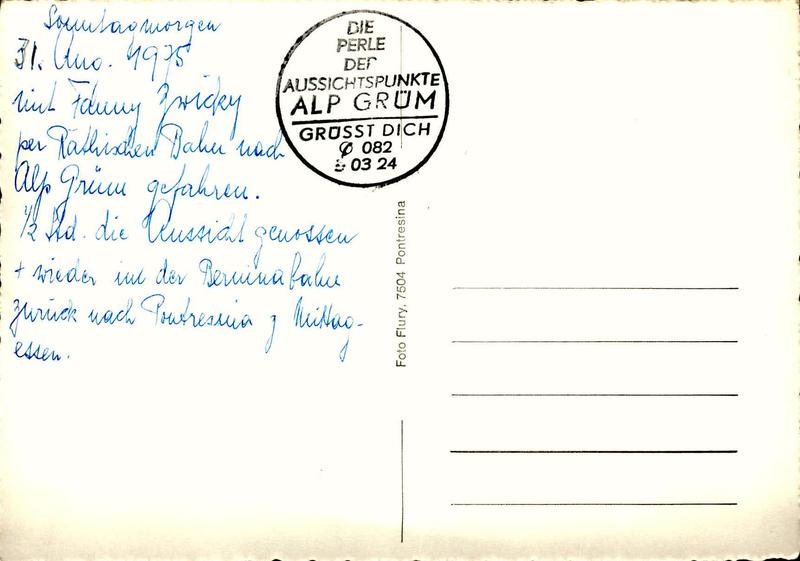 Sonntagmorgen
31. Aug. 1975
mit Fanny Zwicky
per Räthischen Bahn nach
Alp Grüm gefahren.
1/2 Std. die Aussicht genossen
+ wieder mit der Berninabahn
zurück nach Pontresina z Mittag-
essen.
DIE
PERLE
DER
AUSSICHTSPUNKTE
ALP GRÜM
GRÜSST DICH
082
5 03 24
Foto Flury, 7504 Pontresina